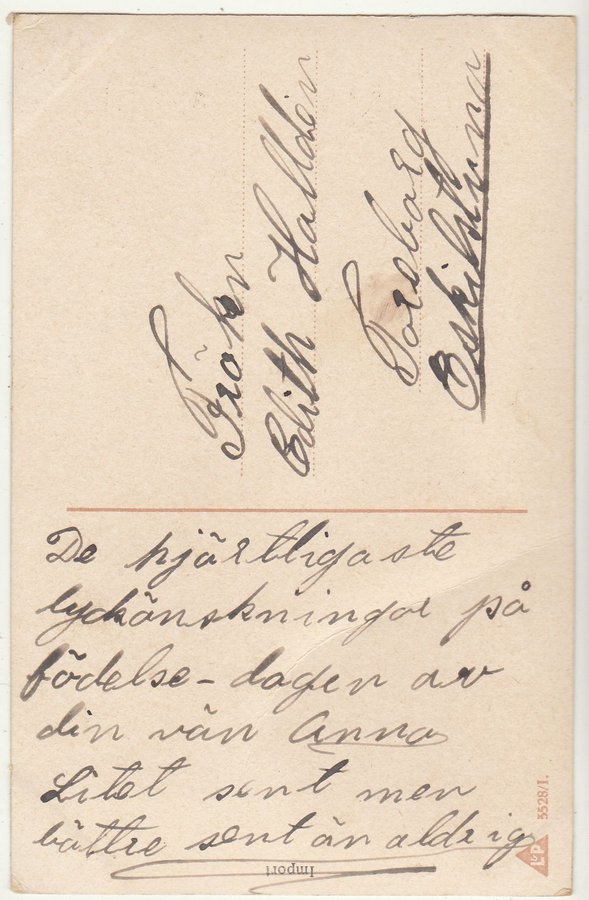 Fröken
Edith Halldin
Toreborg
Eskilstuna
De hjärtligaste
lyckönskningar på
födelse-dagen av
din vän Anna
Litet sent men
bättre sent än aldrig
Import
L&P
3528/I.